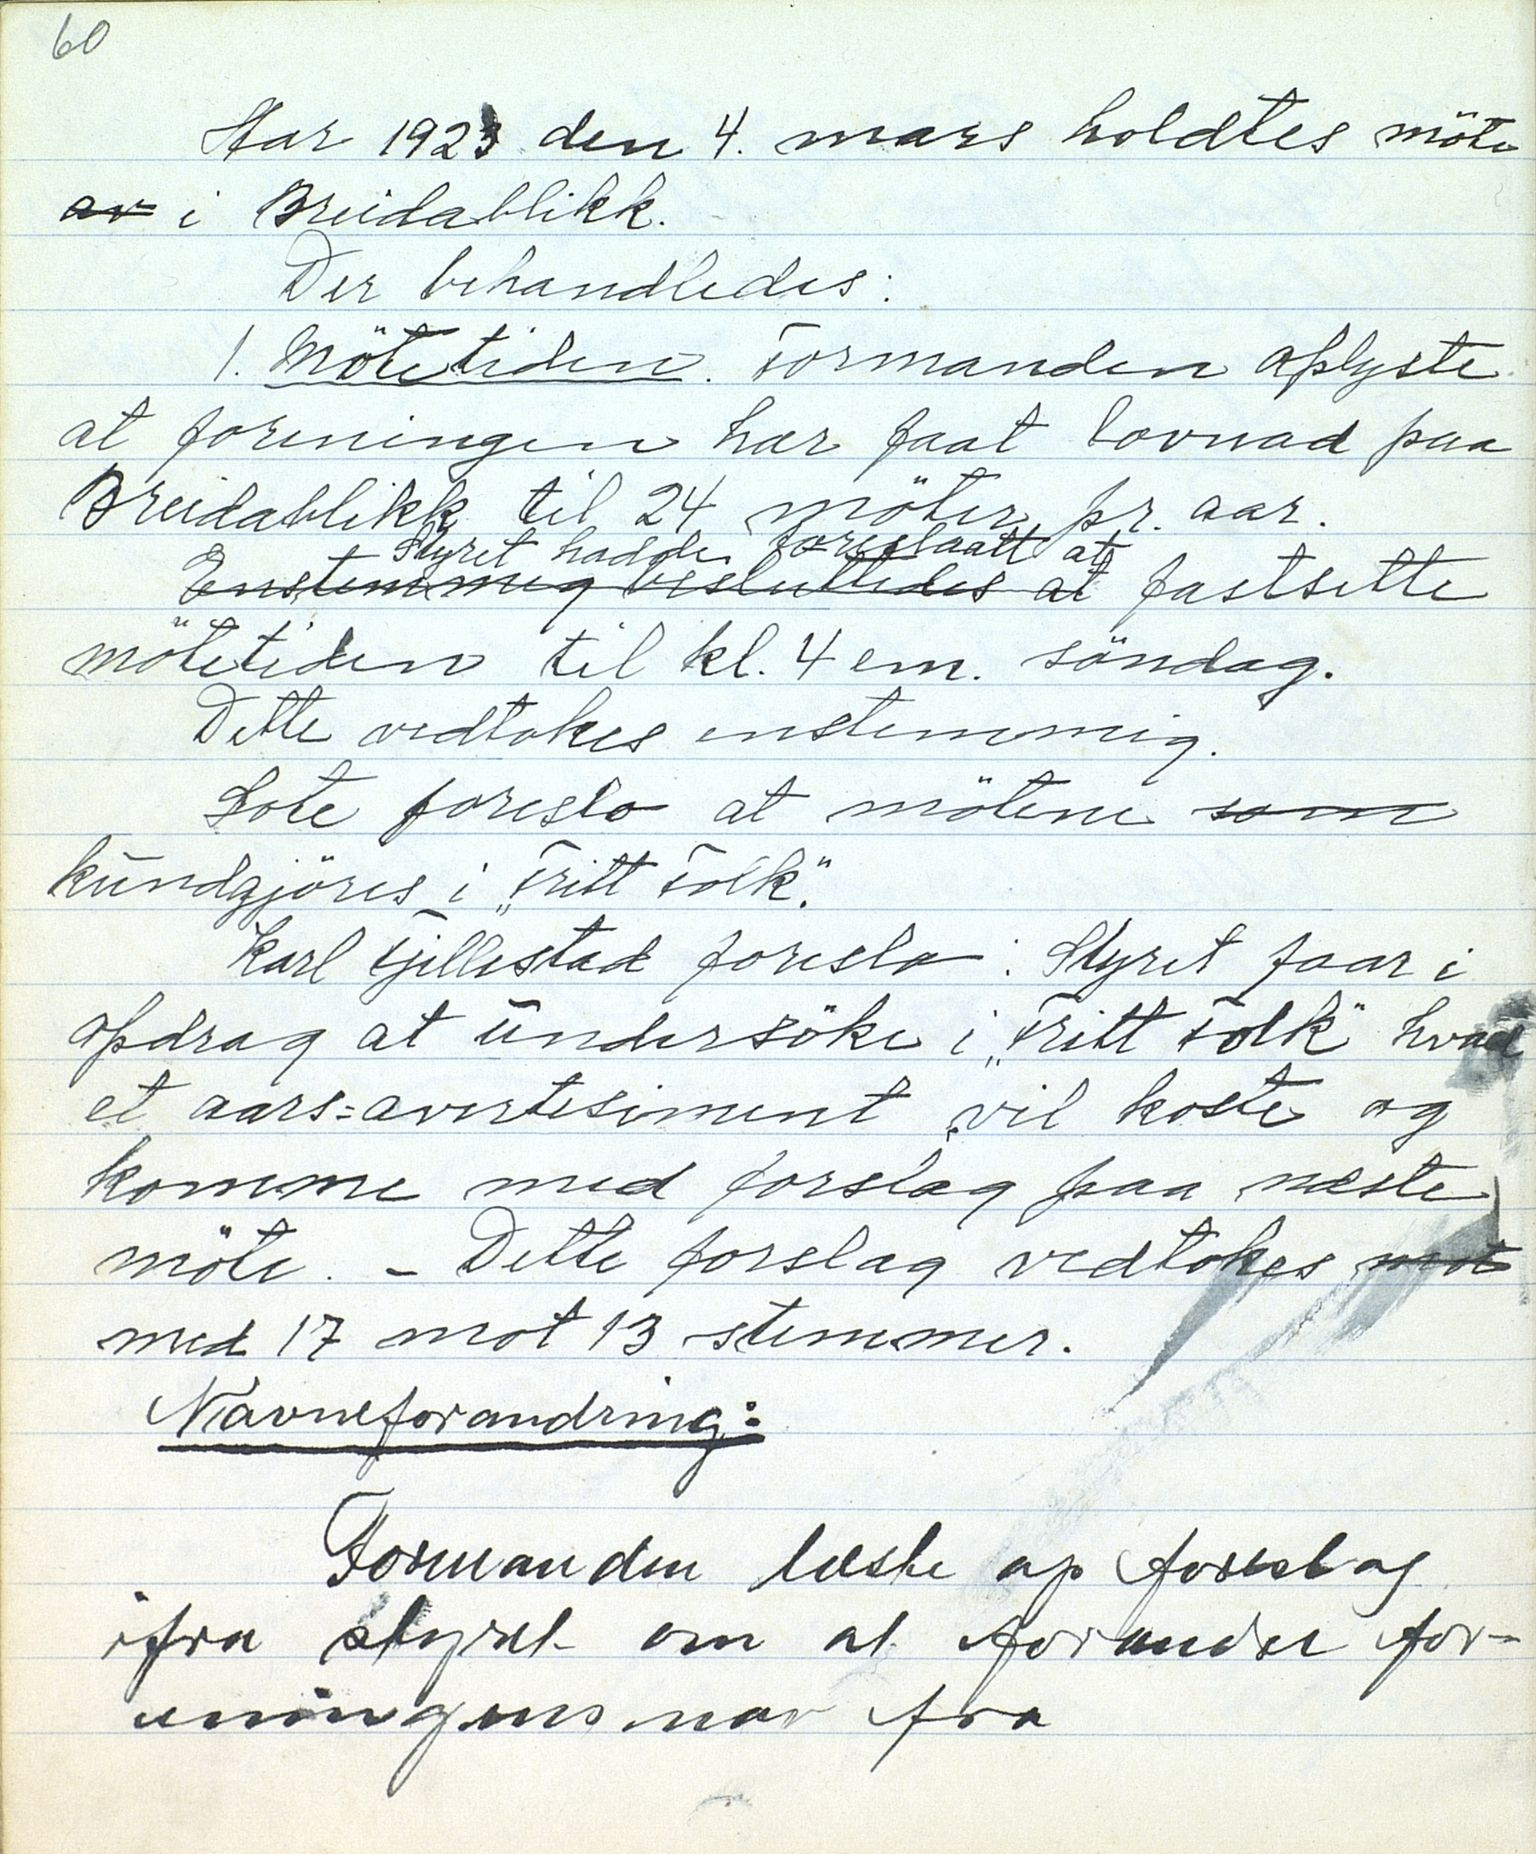 60
Aar 1923 den 4. mars holdtes möte
av i Breidablikk.
Der behandledes:
1. Mötetiden. Formanden oplyste
at foreningen har faat lovnad paa
Breidablikk til 24 möter pr. aar.
Styret hadde foreslaatt at
Enstemmig besluttedes at fastsette
mötetiden til kl. 4 em. söndag.
Dette vedtokes enstemmig.
Lote foreslo at mötene som
kundgjöres i „Fritt Folk".
Karl Fjellestad foreslo: Styret faar i
opdrag at undersöke i „Fritt Folk" hvad
et aars=avertesiment vil koste og
komme med forslag paa næste
möte. - Dette forslag vedtokes mot
med 17 mot 13 stemmer.
Navneforandring:
Formanden læste op foreslag
ifra styret om at forander for-
eningens nav fra